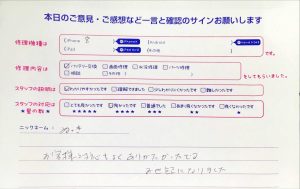 本日のご意見・ご感想など一言と確認のサインお願いします
修理機種は
iPhone 8
iPad
Android
その他
修理内容は
バッテリー交換 画面修理 水没修理 パーツ修理
確認 その他
をしてもらいました。
スタッフの説明は
わかりやすかったです 理解できました 少しわかりにくかったです 難しかったです
スタッフの対応は
★星の数★
とても良かったです 良かったです 普通でした あまり良くなかったです 良くなかったです
★★★★★ ★★★★ ★★★ ★★ ★
ニックネーム:
お客様
ありがたかったです
お世話になりました